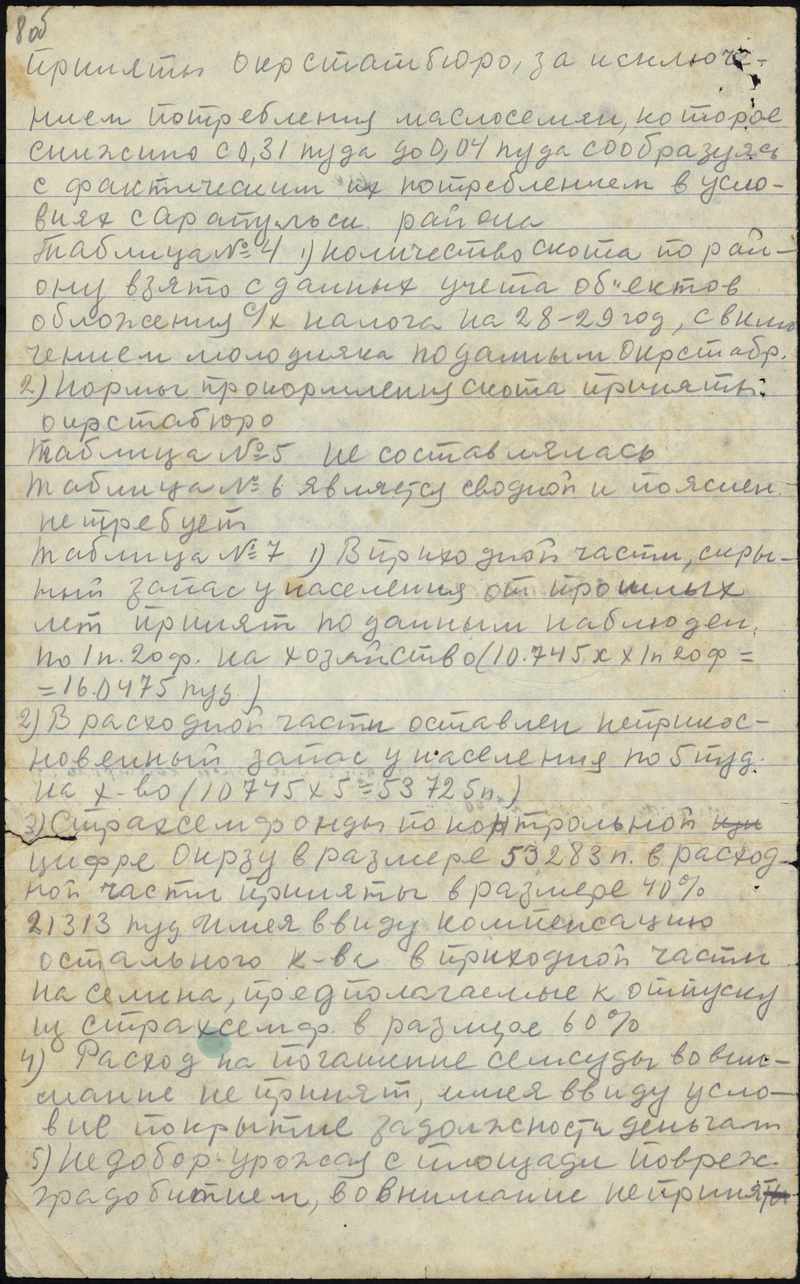 8об
Приняты Окрстатбюро, за исключе-
нием потребления маслосемян, которое
снижено с 0,31 пуда до 0,04 пуда сообразуясь
с фактическим их потреблением в усло-
виях Сарапульск. района
Таблица № 4 1) Количество скота по рай-
ону взято с данных учета об"ектов
обложения с/х налога на 28-29 год, с вклю
чением молодняка по данным Окрстабр.
2) Нормы прокормления скота приняты
окрстабюро
Таблица № 5 не составлялась
Таблица № 6 является сводной и пояснен.
не требует
Таблица № 7 1) В приходной части, скры-
тый запас у населения от прошлых
лет принят по данным наблюден.
по 1п. 20ф. на хозяйство (10.745 х х 1п 20ф =
= 16.0475 пуд.)
2) В расходной части оставлен неприкос-
новенный запас у населения по 5 пуд.
на х-во (10745 х 5 = 53725п.)
3) Страхсемфонды по контрольной
цифре Окрзу в размере 53283п. в расход-
ной части приняты в размере 40%
21313 пуд имея ввиду компенсацию
остального к-ва в приходной части
на семена, предполагаемые к отпуску
из страхсемф. в размере 60%
4) Расход на погашение семссуды во вни-
мание не принят, имея ввиду усло-
вие покрытие задолжности деньгам
5) Недобор урожая с площади повреж.
градобитием, во внимание не принят